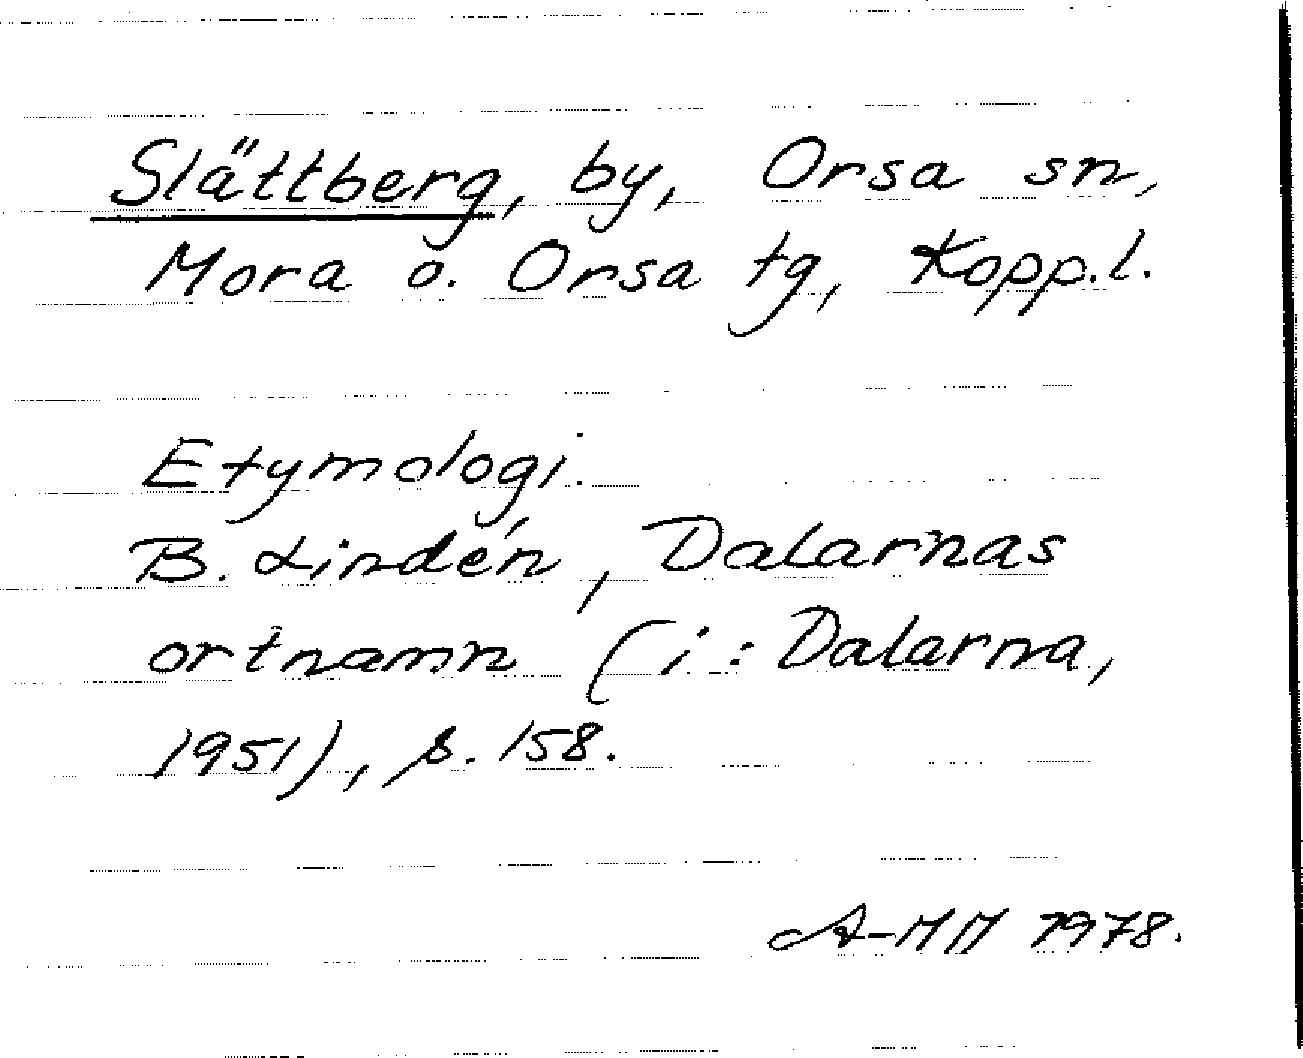 Slättberg, by, Orsa sn,
Mora o. Orsa tg, Kopp.l.
Etymologi:
B. Lindén, Dalarnas
ortnamn (i: Dalarna,
1951), s. 158.
A-MM 1978.